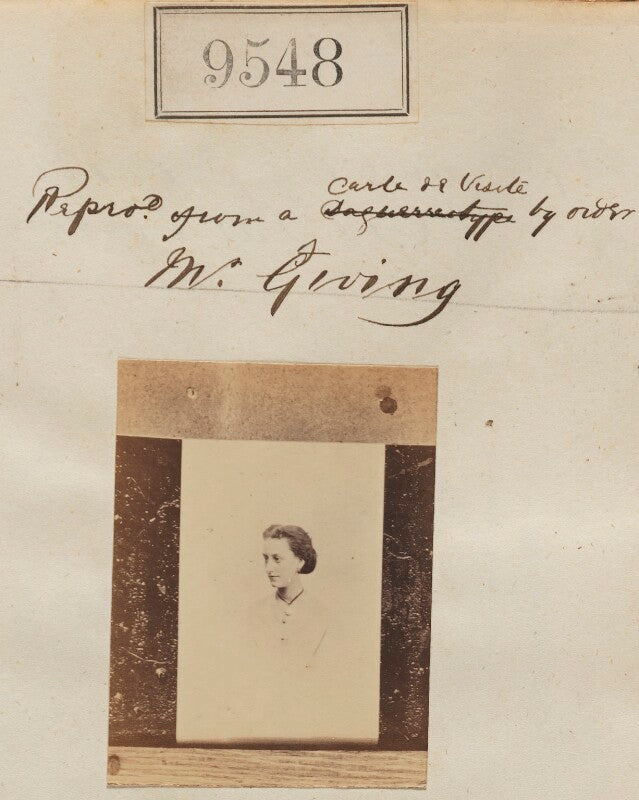 9548
carte de Visite
Repro.d from a Daguerreotype by order
Mr. Geving